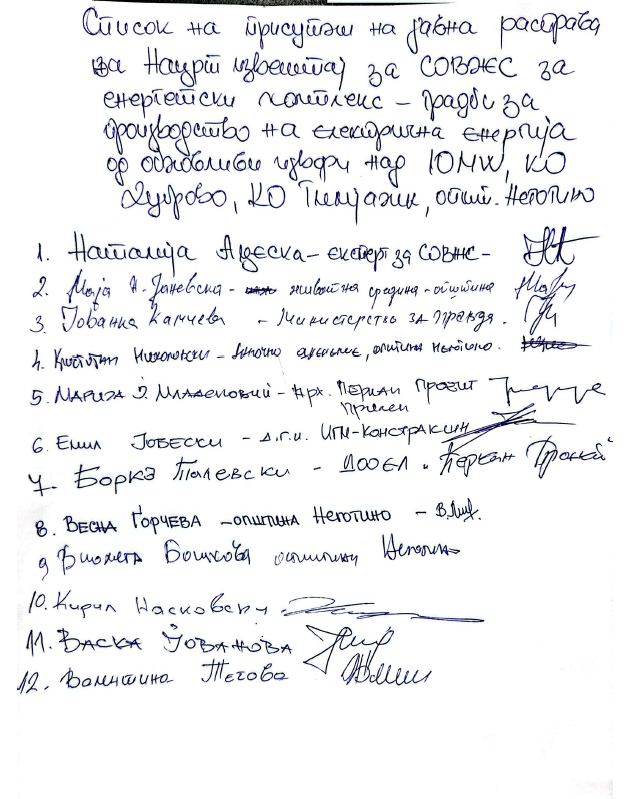 Список на присутни на јавна расправа
за Нацрт извештај за СОВЖС за
енергетски комплекс – градби за
производство на електрична енергија
од обновливи извори над 10MW, КО
Дуброво, КО Тимјаник, општ. Неготино
1. Наталија Ацеска – експерт за СОВЖС –
2. Маја Јаневска – животна средина – општина
3. Јованка Камчева – Министерство за правда.
4. Николоски – општина Неготино.
5. Марија Младеновиќ – Арх.
Прилеп
6. Емил Јобески – д.г.и. ИГМ-Констракшн
7. Борка Талевски – ДООЕЛ
8. Весна Ѓорчева – општина Неготино –
9 Виолета Бошкова општина Неготино
10. Кирил Насковски
11. Васка Јованова
12. Валентина